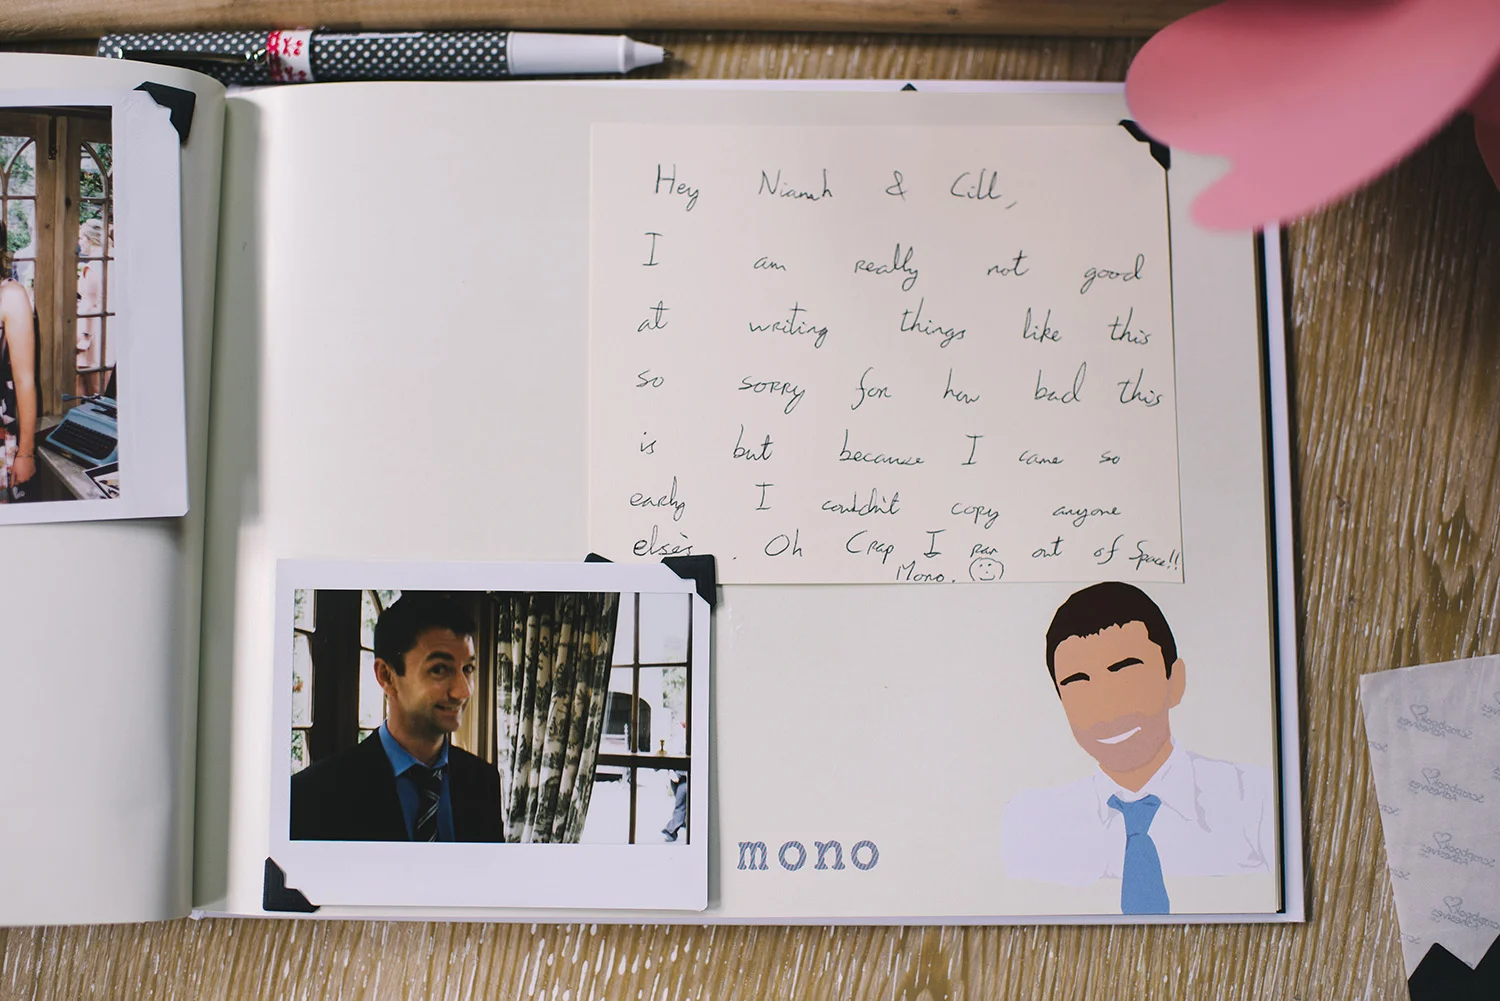 Hey Niamh & Cill,
I am really not good
at writing things like this
so sorry for how bad this
is but because I came so
early I couldn't copy anyone
else's . Oh Crap I ran out of Space!!
Mono.
mono